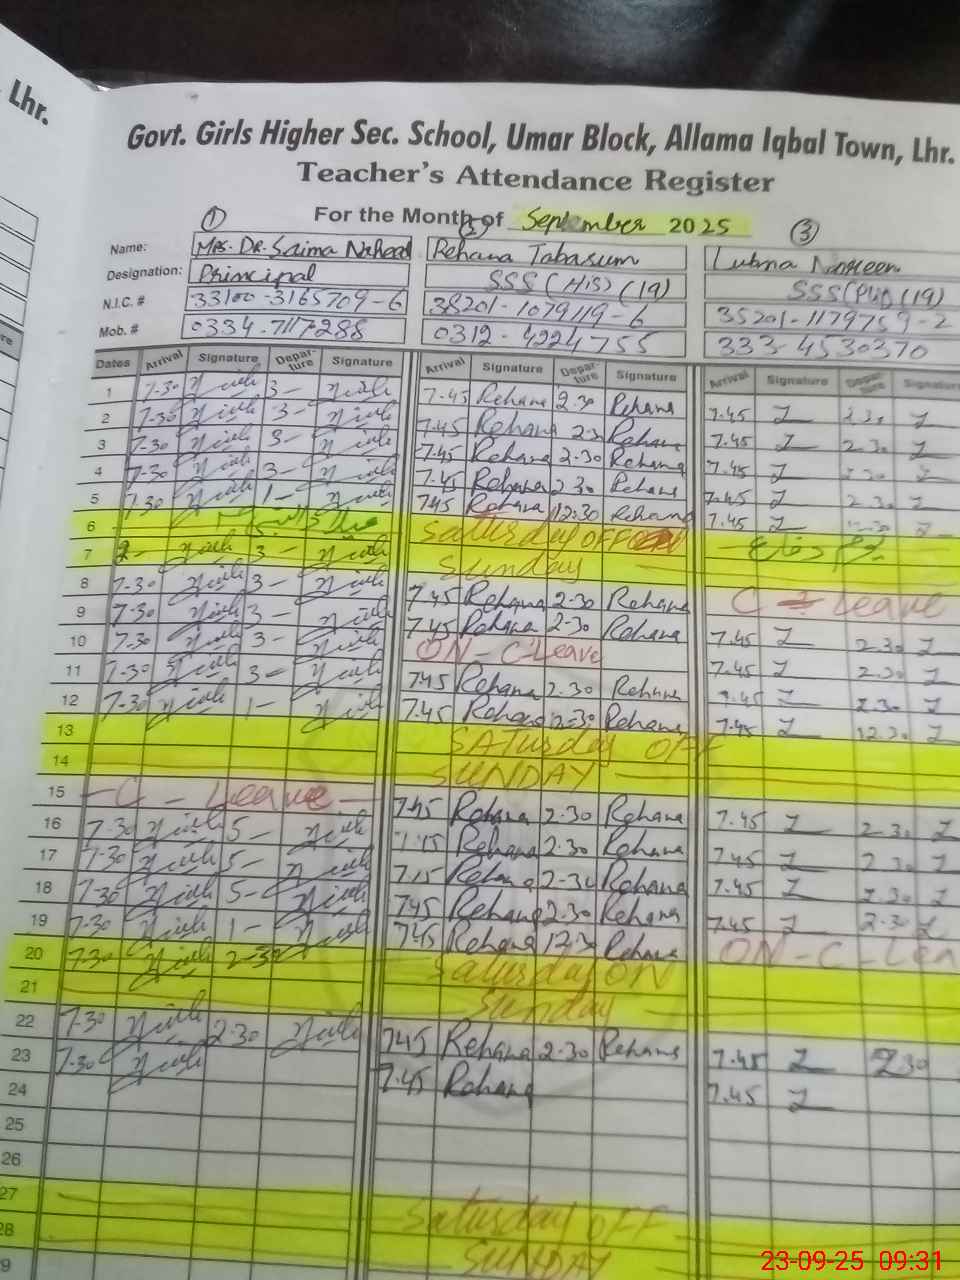 Lhr.
Govt. Girls Higher Sec. School, Umar Block, Allama Iqbal Town, Lhr.
Teacher's Attendance Register
For the Month of September 2025
① ③
Name: Mrs. Dr. Saima Naheed Rehana Tabasum Lubna Nasreen
Designation: Principal SSS (HIS) (19) SSS (19)
N.I.C. # 33100-3165709-6 38201-1079119-6 35201-1179759-2
Mob. # 0334-7117288 0312-4224755 333-4530370
Dates Arrival Signature Depar-ture Signature Arrival Signature Depar-ture Signature Arrival Signature Depar-ture Signature
1 7-30 3- 7-45 Rehana 2.30 Rehana 7.45 Z 2.30 Z
2 7-30 3- 7.45 Rehana 2.3 Rehana 7.45 Z 2.30 Z
3 7-30 3- 7.45 Rehana 2-30 Rehana 7.45 Z Z
4 7-30 3- 7.45 Rehana 2.30 Rehana 7.45 Z 2.30 Z
5 7.30 1- 7.45 Rehana 12.30 Rehana 7.45 Z Z
6 Saturday OFF یوم دفاع
7 3- Sunday
8 7-30 3- 7.45 Rehana 2-30 Rehana C Leave
9 7-30 3- 7.45 Rehana 2-30 Rehana 7.45 Z 2.30 Z
10 7-30 3- ON - C Leave 7.45 Z 2.30 Z
11 7-30 3- 7.45 Rehana 2.30 Rehana 7.45 Z 2.30 Z
12 7-30 1- 7.45 Rehana 2-30 Rehana 7.45 Z 12.30 Z
13 SATurday OFF
14 SUNDAY
15 - C - Leave - 7.45 Rehana 2-30 Rehana 7.45 Z 2-30 Z
16 7-30 5- Rehana 2.30 Rehana 7.45 Z 2.30 Z
17 7-30 5- Rehana 2-30 Rehana 7.45 Z 2.30 Z
18 7-30 5- 7.45 Rehana 2.30 Rehana 7.45 Z 2-30 Z
19 7-30 1- 7.45 Rehana 12.30 Rehana ON - C - Lea
20 7-30 2-30 Saturday ON
21 Sunday
22 7-30 2-30 7.45 Rehana 2-30 Rehana 7.45 Z 2.30
23 7-30 7.45 Rehana 7.45 Z
24
25
26
27 Saturday OFF
28 SUNDAY
23-09-25 09:31